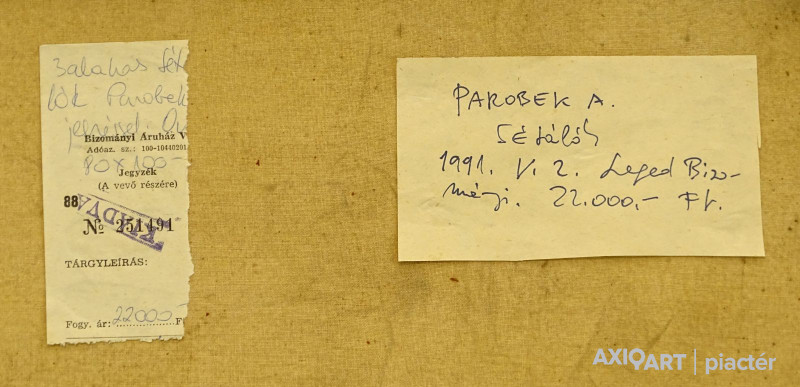 3alakos sét
lók Parobek
jelzéssel. O
Bizományi Áruház V
Adóaz. sz.: 100-10440201
80x100-
Jegyzék
(A vevő részére)
88
№ 251491
KIADVA
TÁRGYLEÍRÁS:
Fogy. ár: 22000- F
PAROBEK A.
SÉTÁLÓK
1991. V. 2. Szeged Bizo-
mányi. 22.000,- Ft.
AXIOART | piactér